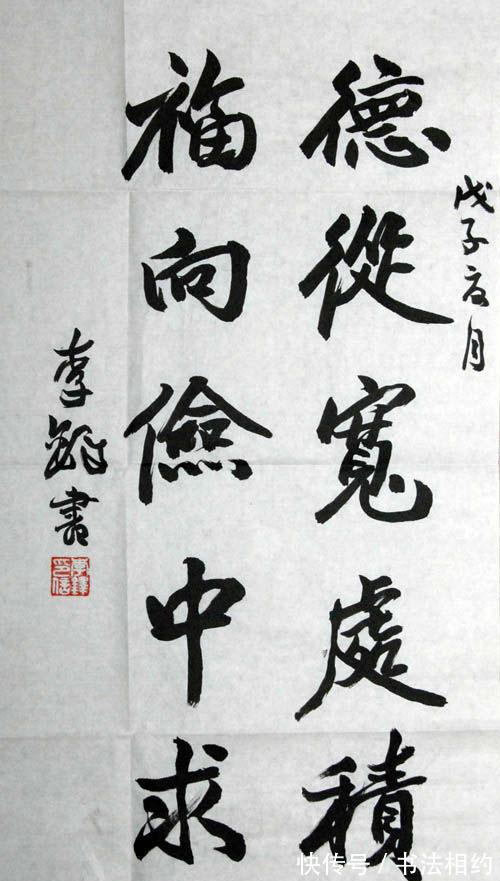 戊子夏月
德從寬處積
福向儉中求
李鐸書
李鐸
印信
快传号／书法相约